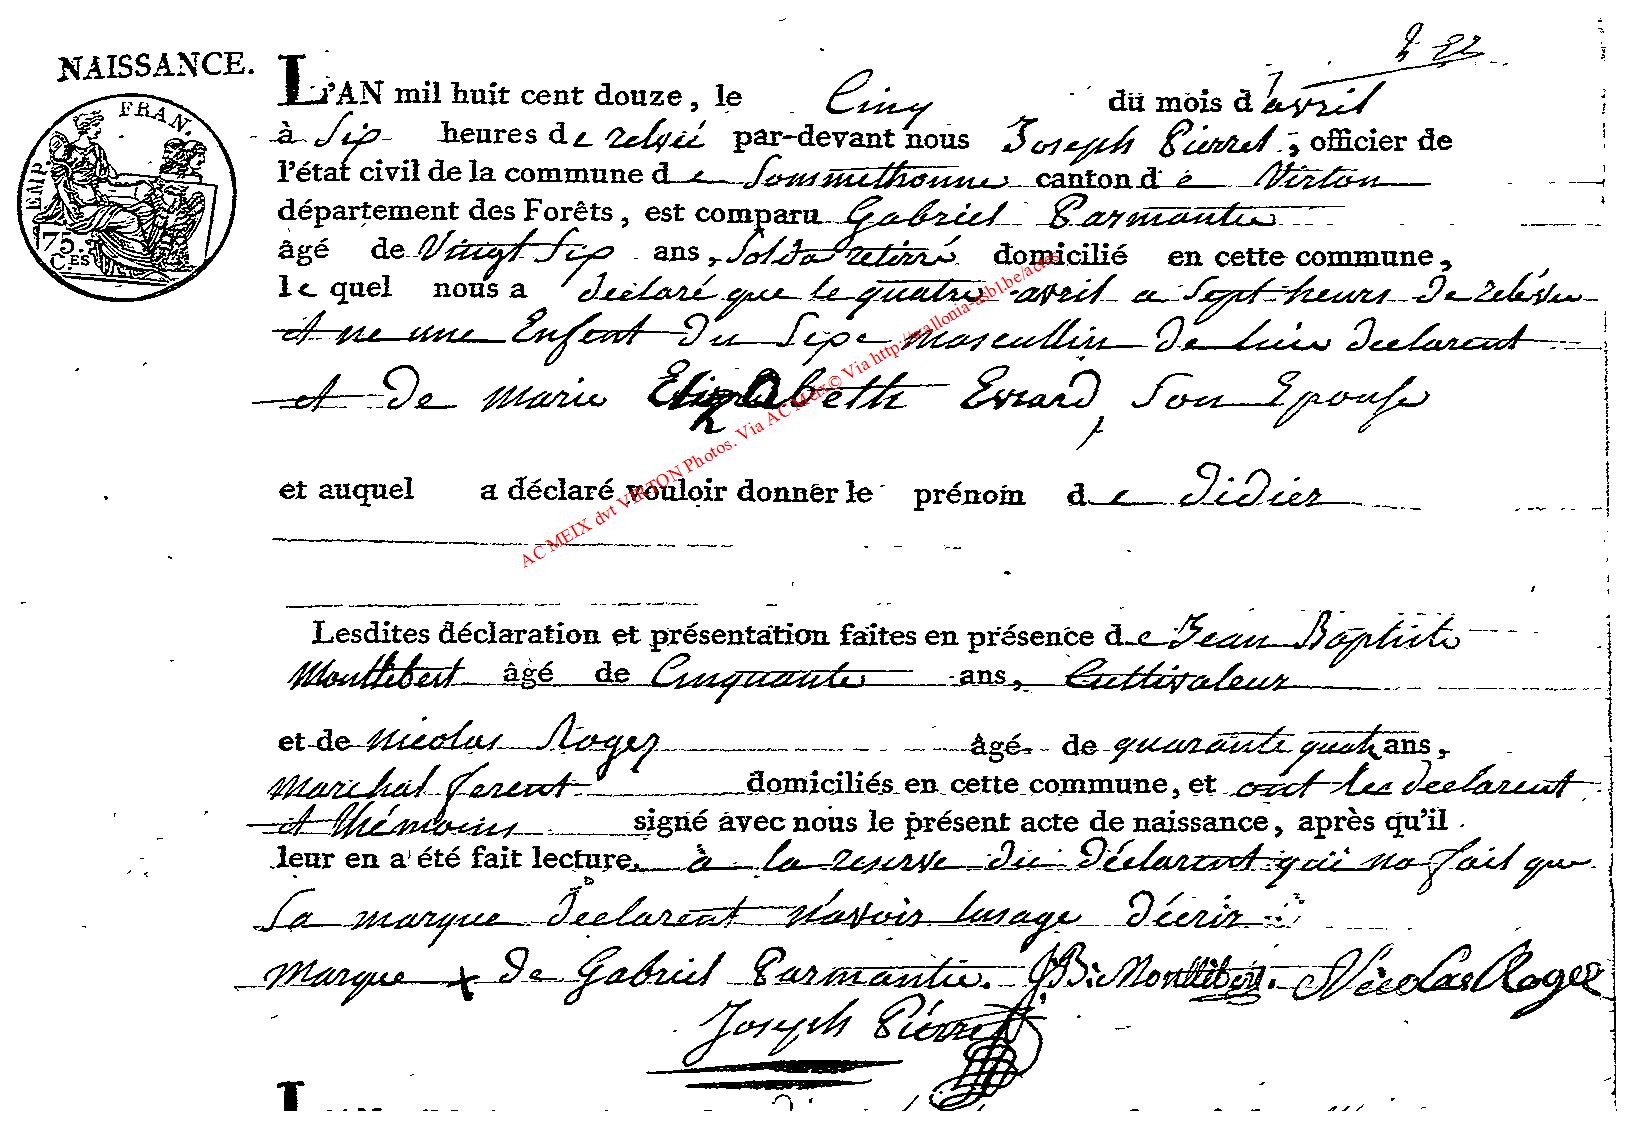 NAISSANCE.
L'AN mil huit cent douze, le Cinq du mois d'avril
à Sip heures de relvée par-devant nous Joseph Pierret, officier de
l'état civil de la commune de Sommethonne canton de Virton
département des Forêts, est comparu Gabriel Parmantie
âgé de Vingt Sip ans, Soldat retirré domicilié en cette commune,
le quel nous a declaré que le quatre avril a Sept heurs de relévée
et ne une Enfent du Sepe mascullin de luie declarent
et de marie Elizabeth Evrard, Son Epouse
et auquel a déclaré vouloir donner le prénom de Didier
Lesdites déclaration et présentation faites en présence de Jean Baptiste
Montlibert âgé de Cinquante ans, Cultivateur
et de Nicolas Roger âgé de quarante quatre ans,
Marchal ferent domiciliés en cette commune, et ont les declarent
et thémoins signé avec nous le présent acte de naissance, après qu'il
leur en a été fait lecture. à la reserve du déclarent qui na fait que
Sa marque declarent n'avoir lusage décrir
Marque x de Gabriel Parmantie. JB: Montlibert. Nicolas Roger
Joseph Pierret
FRAN.
EMP.
75.
C.ES
AC MEIX dvt VIRTON Photos. Via AC MEIX© Via http://wallonia-asbl.be/actes